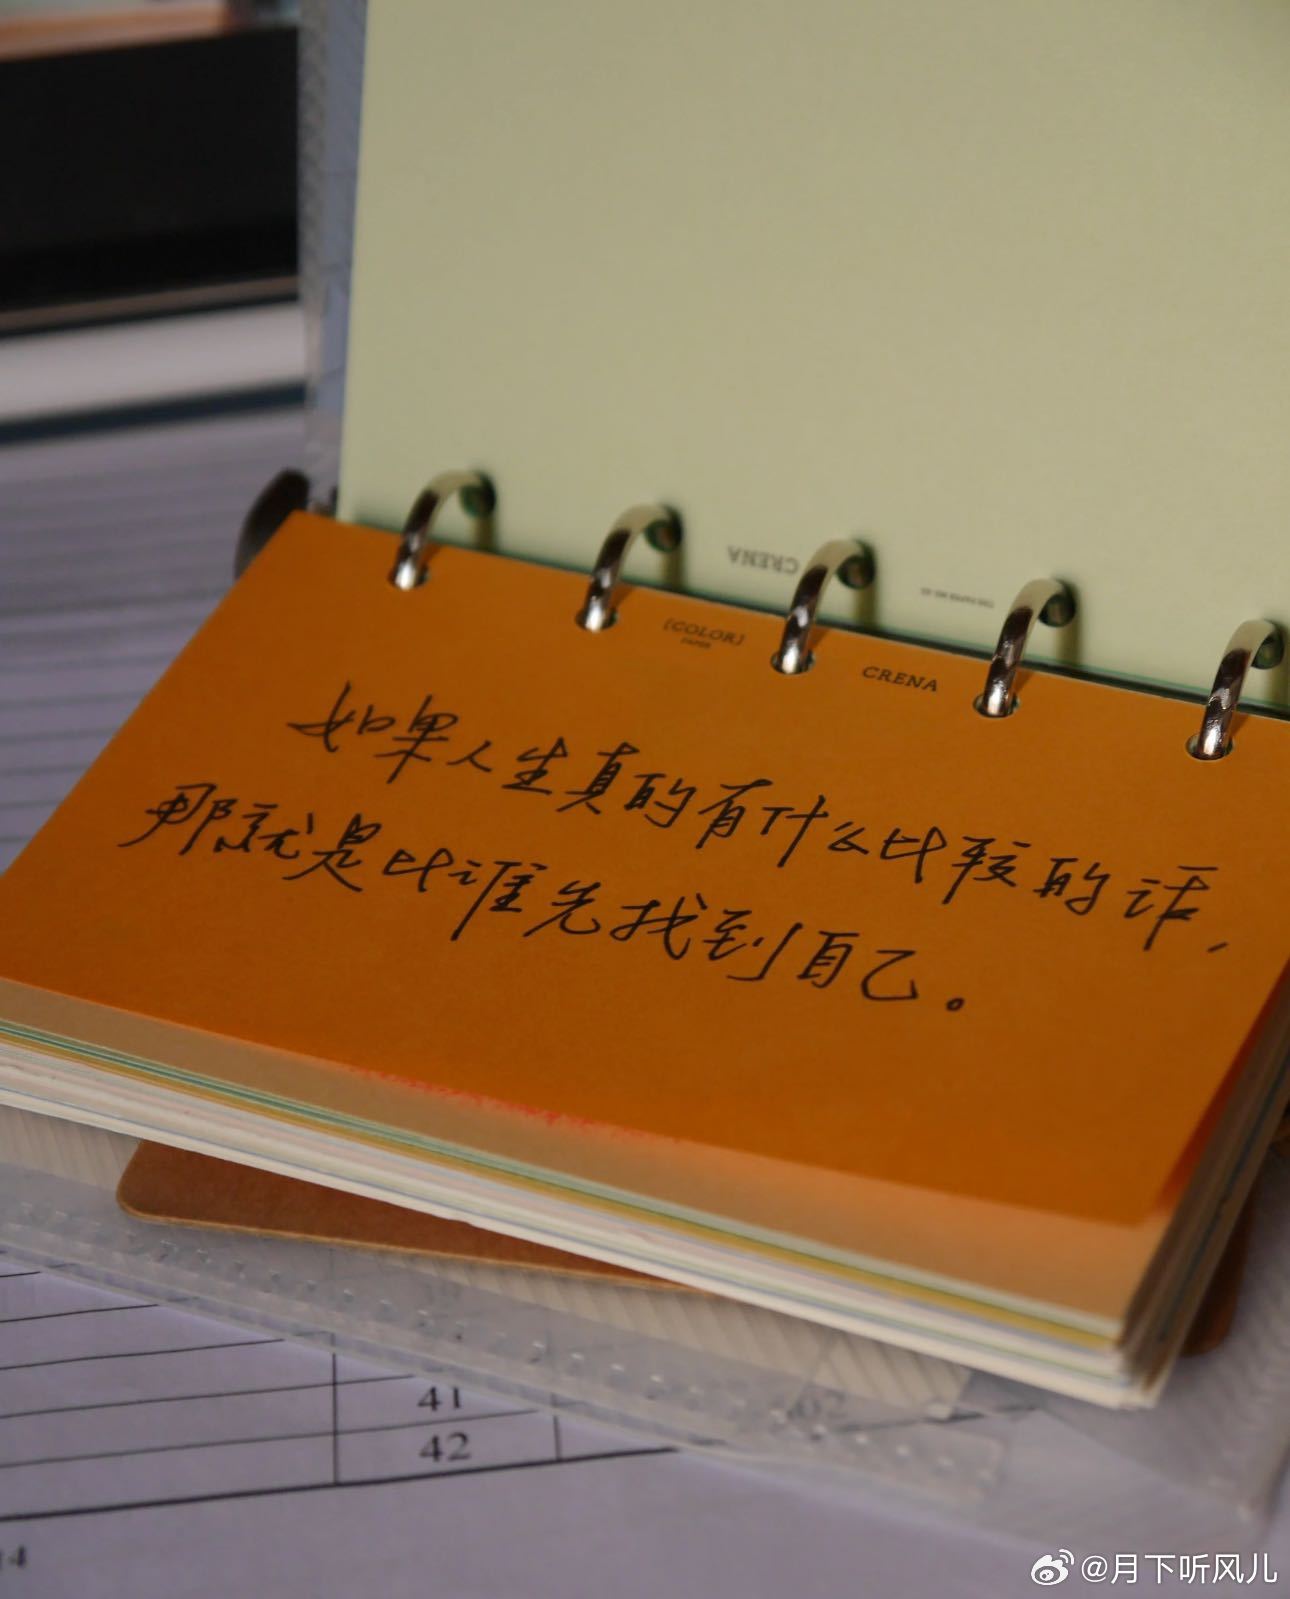 CRENA
[COLOR]
PAPER
CRENA
如果人生真的有什么比较的话,
那就是比谁先找到自己。
41
42
@月下听风儿